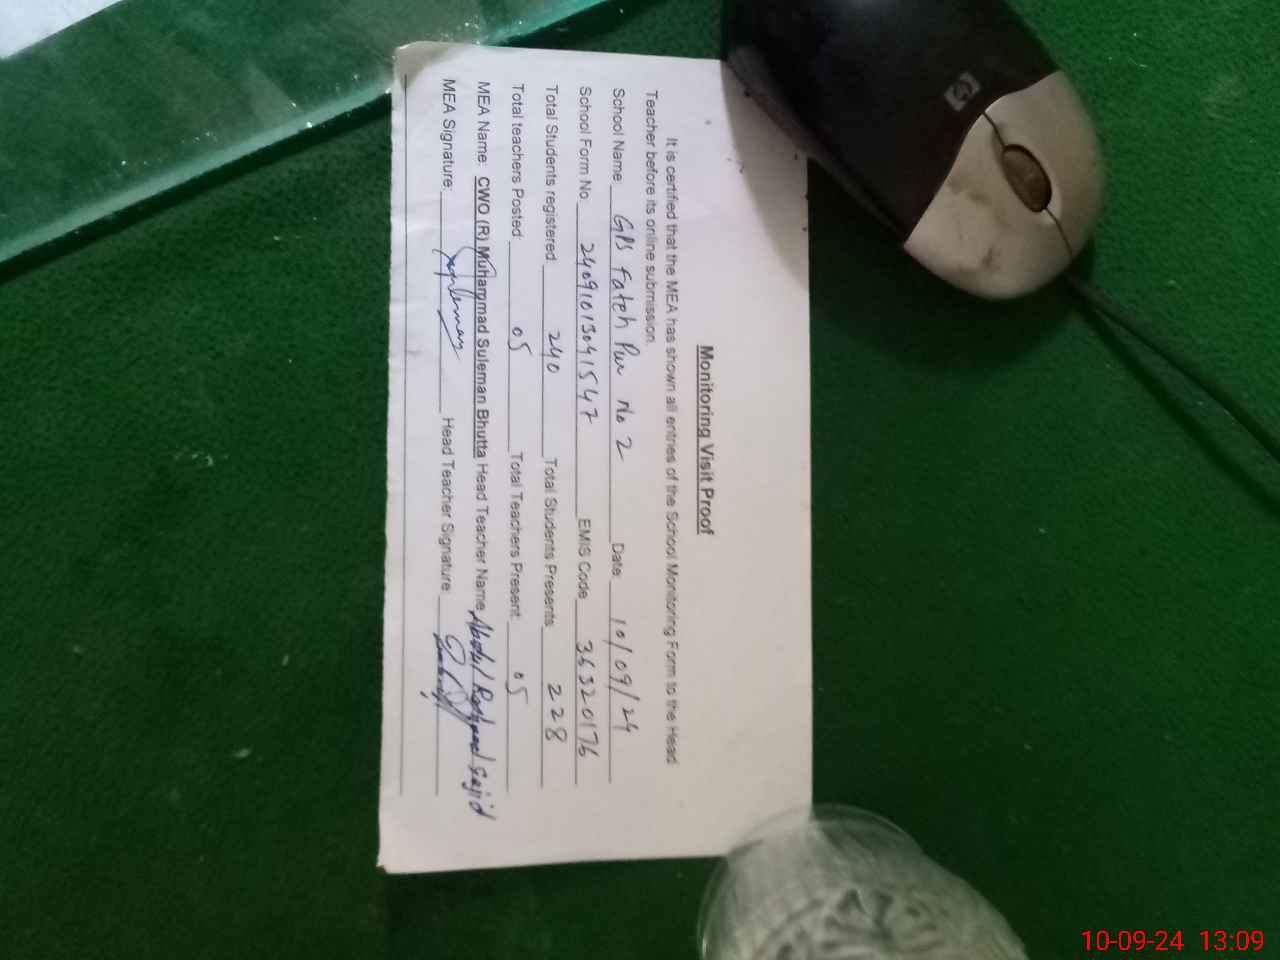 Monitoring Visit Proof
It is certified that the MEA has shown all entries of the School Monitoring Form to the Head
Teacher before its online submission.
School Name: GPS Fateh Pur No 2 Date: 10/09/24
School Form No. 24091013041547 EMIS Code 36320176
Total Students registered 240 Total Students Presents 228
Total teachers Posted: 05 Total Teachers Present: 05
MEA Name: CWO (R) Muhammad Suleman Bhutta Head Teacher Name Abdul Rasheed Sajid
MEA Signature: Head Teacher Signature
hp
10-09-24 13:09